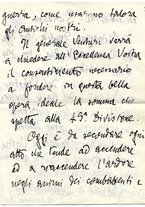 guerra, come usarono talora
gli antichi nostri.
Il generale Venturi verrà
a chiedere all'Eccellenza Vostra
il consentimento necessario
a fondere in questa bella
opera ideale la somma che
spetta alla 45ª Divisione.
Oggi è da secondare ogni
atto che tende ad accendere
ad a riaccendere l'ardore
negli animi dei combattenti e